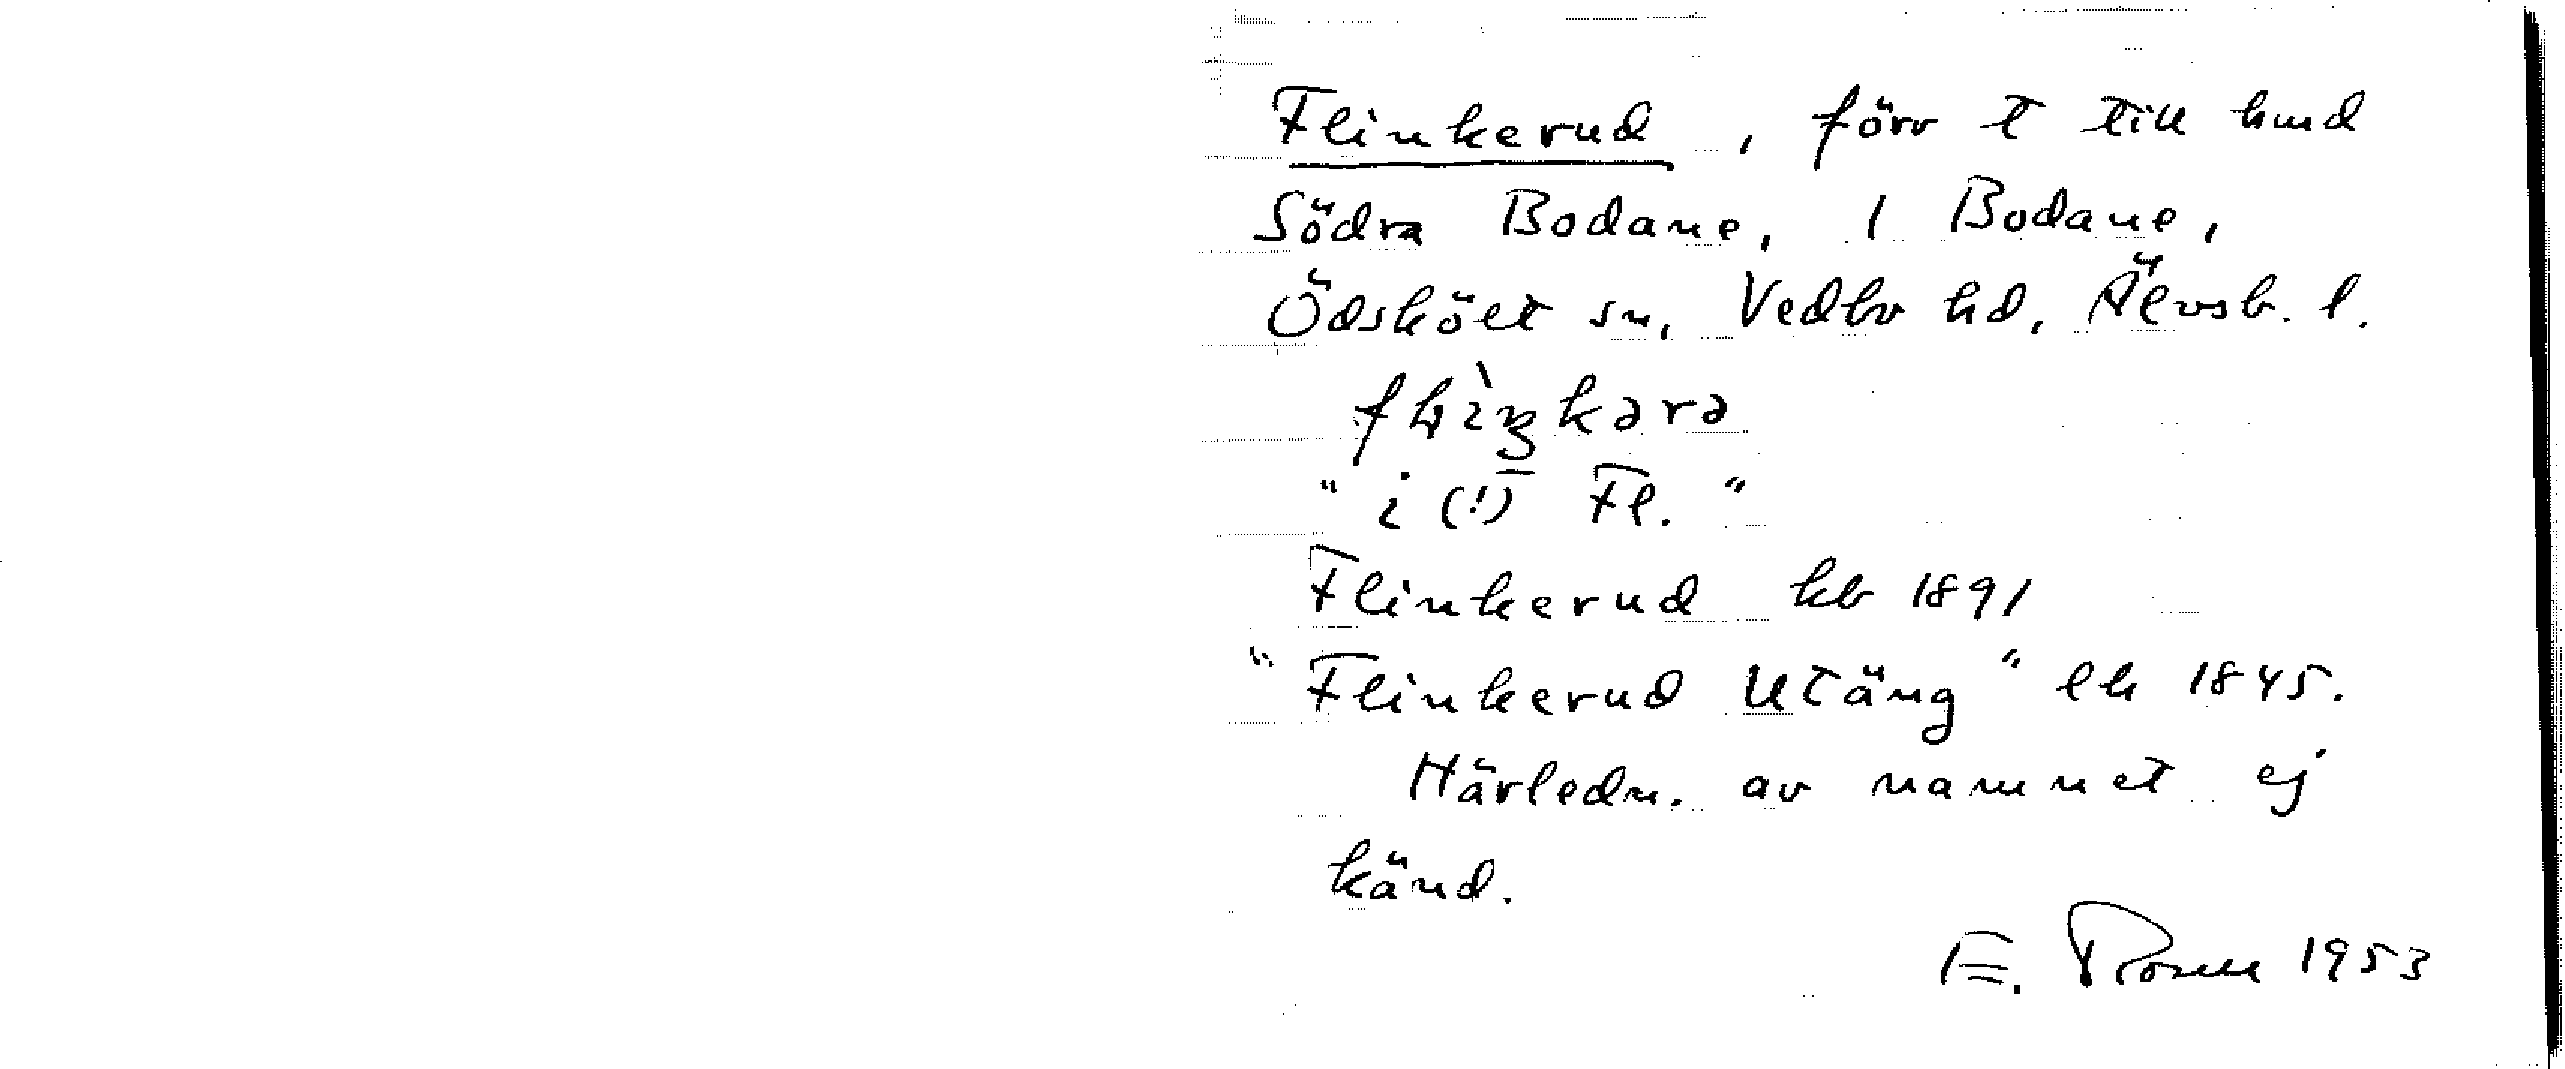 Flinkerud, förr t till hmd
Södra Bodane, 1 Bodane,
Ödsköelt sn, Vedbo hd, Älvsb. l.
" i (!) Fl. "
Flinkerud kb 1891
"Flinkerud Utäng" lk 1845.
Härledn. av namnet ej
känd.
E. Rosell 1953